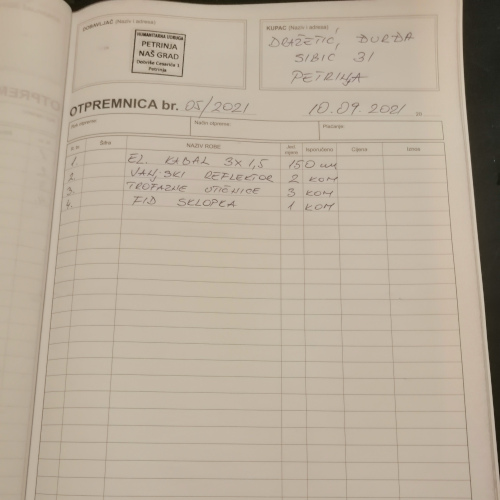 DOBAVLJAČ (Naziv i adresa)
HUMANITARNA UDRUGA
PETRINJA
NAŠ GRAD
Petrinja
KUPAC (Naziv i adresa)
DRAŽETIĆ, ĐURĐA
SIBIĆ 31
PETRINJA
OTPREMNICA br. 05/2021
10.09.2021 20
Način otpreme:
Plaćanje:
R.br. Šifra NAZIV ROBE Jed. mjere Isporučeno Cijena Iznos
1. EL. KABAL 3x1,5 150 m
2. VANJSKI REFLEKTOR 2 KOM
3. TROFAZNE UTIČNICE 3 KOM
4. FID SKLOPKA 1 KOM